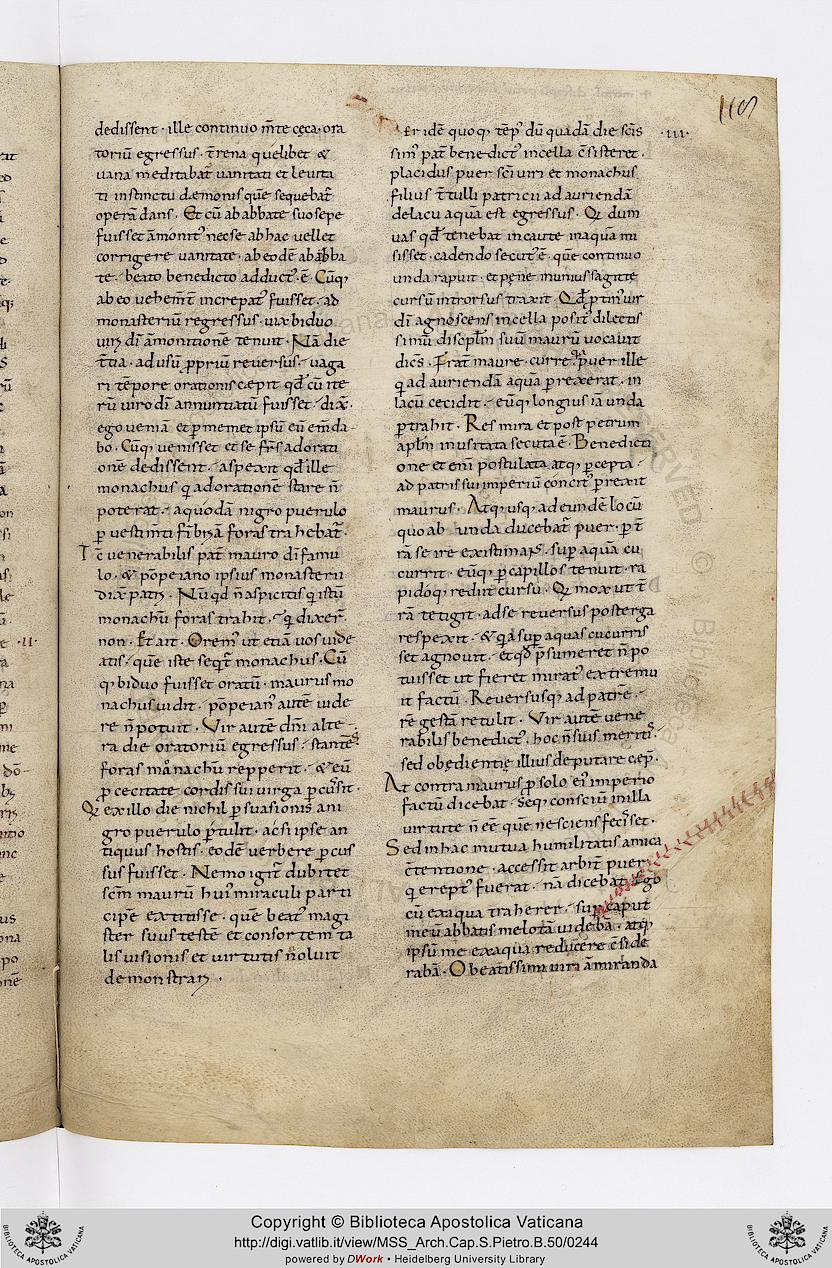 dedissent · ille continuo m̄te cęca · ora
toriū egressus · t̄rena quęlibet &
uana meditabat̄ uanitati et leuita
ti instinctu dæmonis quē sequebat̄
operā dans · Et cū ab abbate suo sepe
fuisset āmonit᾽ ne se ab hac uellet
corrigere uanitate · ab eodē abābba
te · beato benedicto adduct᾽ · ē · Cūq;
ab eo uehem̄t increpat᾽ fuisset · ad
monasteriū regressus · uix biduo
uiri dī āmonitionē tenuit · Nā die
t̄tia · ad usū ꝓpriū reuersus · uaga
ri tēpore orationis cæpit qđ cū ite
rū uiro dī annuntiatū fuisset · dix̄ ·
ego ueniā et ꝑmemet ipsū eū em̄da
bo · Cūq; uenisset et se fr̄s adorati
onē dedissent · aspexit qđ ille
monachus q̄ adorationē stare n̄
poterat · a quodā nigro puerulo
ꝑ uestim̄ti fībriā foras trahebat̄ ·
Tc̄ uenerabilis pat̄ mauro dī famu
lo · & pōpeiano ipsius monasterii
dix̄ patri · Nū qd n̄ aspicitis q̄ istū
monachū foras trahit · q̄ dixer̄ ·
non · Et ait · Orem᾽ ut etiā uos uide
atis · quē iste seqt̄ monachus · Cū
q; biduo fuisset oratū · maurus mo
nachus uidit · pōpeian᾽ autē uide
re n̄ potuit · Vir autē dn̄i alte
ra die oratoriū egressus · stantē
foras monachū repperit · & eū
ꝓ cecitate cordis sui uirga ꝑcussit ·
Q; ex illo die nichil ꝑsuasionis a ni
gro puerulo ꝑtulit · ac si ipse an
tiquus hostis · eodē uerbere ꝑcus
sus fuisset · Nemo igit̄ dubitet
scm̄ maurū hui᾽ miraculi parti
cipē extitisse · quē beat᾽ magi
ster suus testē et consortem ta
lis uisionis et uirtutis n̄ oluit
demonstrari ·
er idē quoq; tēp᾽ dū quadā die scīs · iii ·
sim᾽ pat̄ benedict᾽ in cella c̄sisteret ·
placidus puer sc̄i uiri et monachus
filius t̄tulli patricii ad auriendā
de lacu aquā est egressus · Q; dum
uas qđ tenebat incaute in aquā mi
sisset · cadendo secut᾽ ē · quē continuo
unda rapuit · et pęne in unius sagittę
cursū introrsus traxit · Qđ ꝓtin᾽ uir
dī agnoscens in cella posit᾽ dilectis
simū discplm̄ suū maurū uocauit
dicīs · Frat̄ maure · curre q̄a puer ille
q̄ ad auriendā aquā ꝑrexerat · in
lacū cecidit · eūq; longius iā unda
ꝑtrahit · Res mira et post petrum
aplm̄ inusitata secuta ē · Benedicti
one et eni postulata atq; ꝑcepta ·
ad patris sui imperiū concit᾽ ꝑrexit
maurus · Atq; usq; ad eundē locū
quo ab unda ducebat̄ puer · ꝑ t̄
rā se ire existimans · suꝑ aquā cu
currit · eūq; ꝑ capillos tenuit · ra
pido q; rediit cursu · Q; mox ut t̄
rā tetigit · ad se reuersus post terga
respexit · & q̄a suꝑ aquas cucurris
set agnouit · et qđ p̄sumeret n̄ po
tuisset ut fieret mirat᾽ extremu
it factū · Reuersusq; ad patrē ·
rē gestā retulit · Vir autē uene
rabilis benedict᾽ · hoc n̄ suis meritis ·
sed obędientię illius deputare cep̄ ·
At contra maurus ꝓ solo ei᾽ imperio
factū dicebat · seq; consciū in illa
uirtute n̄ eē quē nesciens fecisset ·
Sed in hac mutua humilitatis amica
c̄tentione · accessit arbit̄ puer
q̄ erept᾽ fuerat · nā dicebat · Ego
cū ex aqua traherer · suꝑ caput
meū abbatis melotā uidebā · atq;
ipsū me ex aqua reducere c̄side
rabā · O beatissimi uiri āmiranda
Copyright © Biblioteca Apostolica Vaticana
http://digi.vatlib.it/view/MSS_Arch.Cap.S.Pietro.B.50/0244
powered by DWork • Heidelberg University Library
BIBLIOTECA APOSTOLICA VATICANA
BIBLIOTECA APOSTOLICA VATICANA